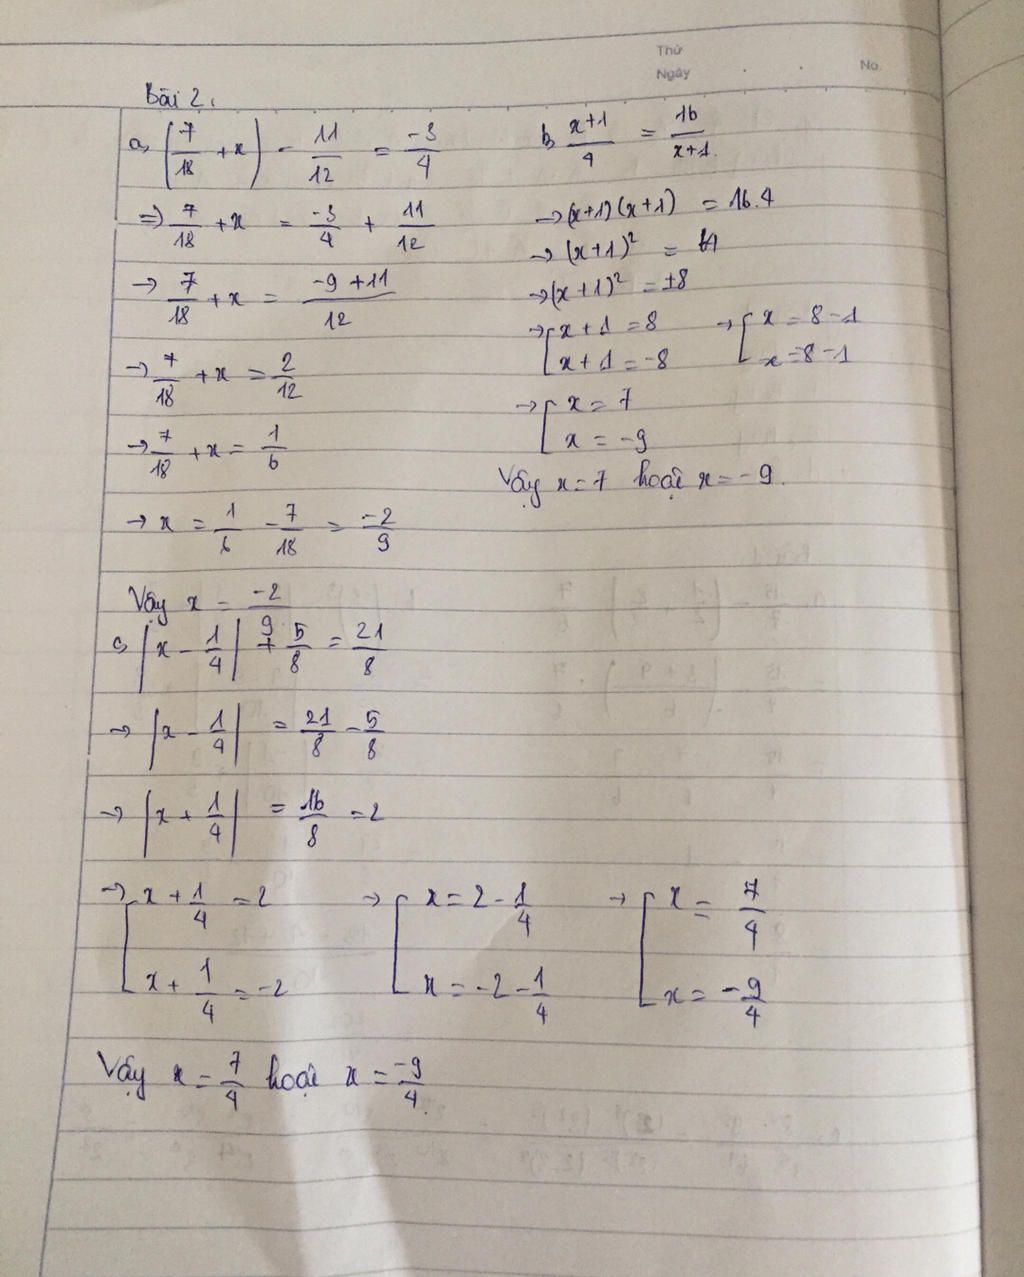 Thứ
Ngày . . No.
Bài 2.
a, (7/18 + x) - 11/12 = -3/4
=> 7/18 + x = -3/4 + 11/12
-> 7/18 + x = -9 + 11/12
-> 7/18 + x = 2/12
-> 7/18 + x = 1/6
-> x = 1/6 - 7/18 = -2/9
Vậy x = -2/9
b, x+1/4 = 16/x+1.
-> (x+1)(x+1) = 16.4
-> (x+1)² = 64
-> (x+1)² = ±8
-> [ x + 1 = 8 -> [ x = 8 - 1
x + 1 = -8 x = -8 - 1
-> [ x = 7
x = -9
Vậy x = 7 hoặc x = -9.
c, |x - 1/4| + 5/8 = 21/8
-> |x - 1/4| = 21/8 - 5/8
-> |x + 1/4| = 16/8 = 2
-> [ x + 1/4 = 2 -> [ x = 2 - 1/4 -> [ x = 7/4
x + 1/4 = -2 x = -2 - 1/4 x = -9/4
Vậy x = 7/4 hoặc x = -9/4.